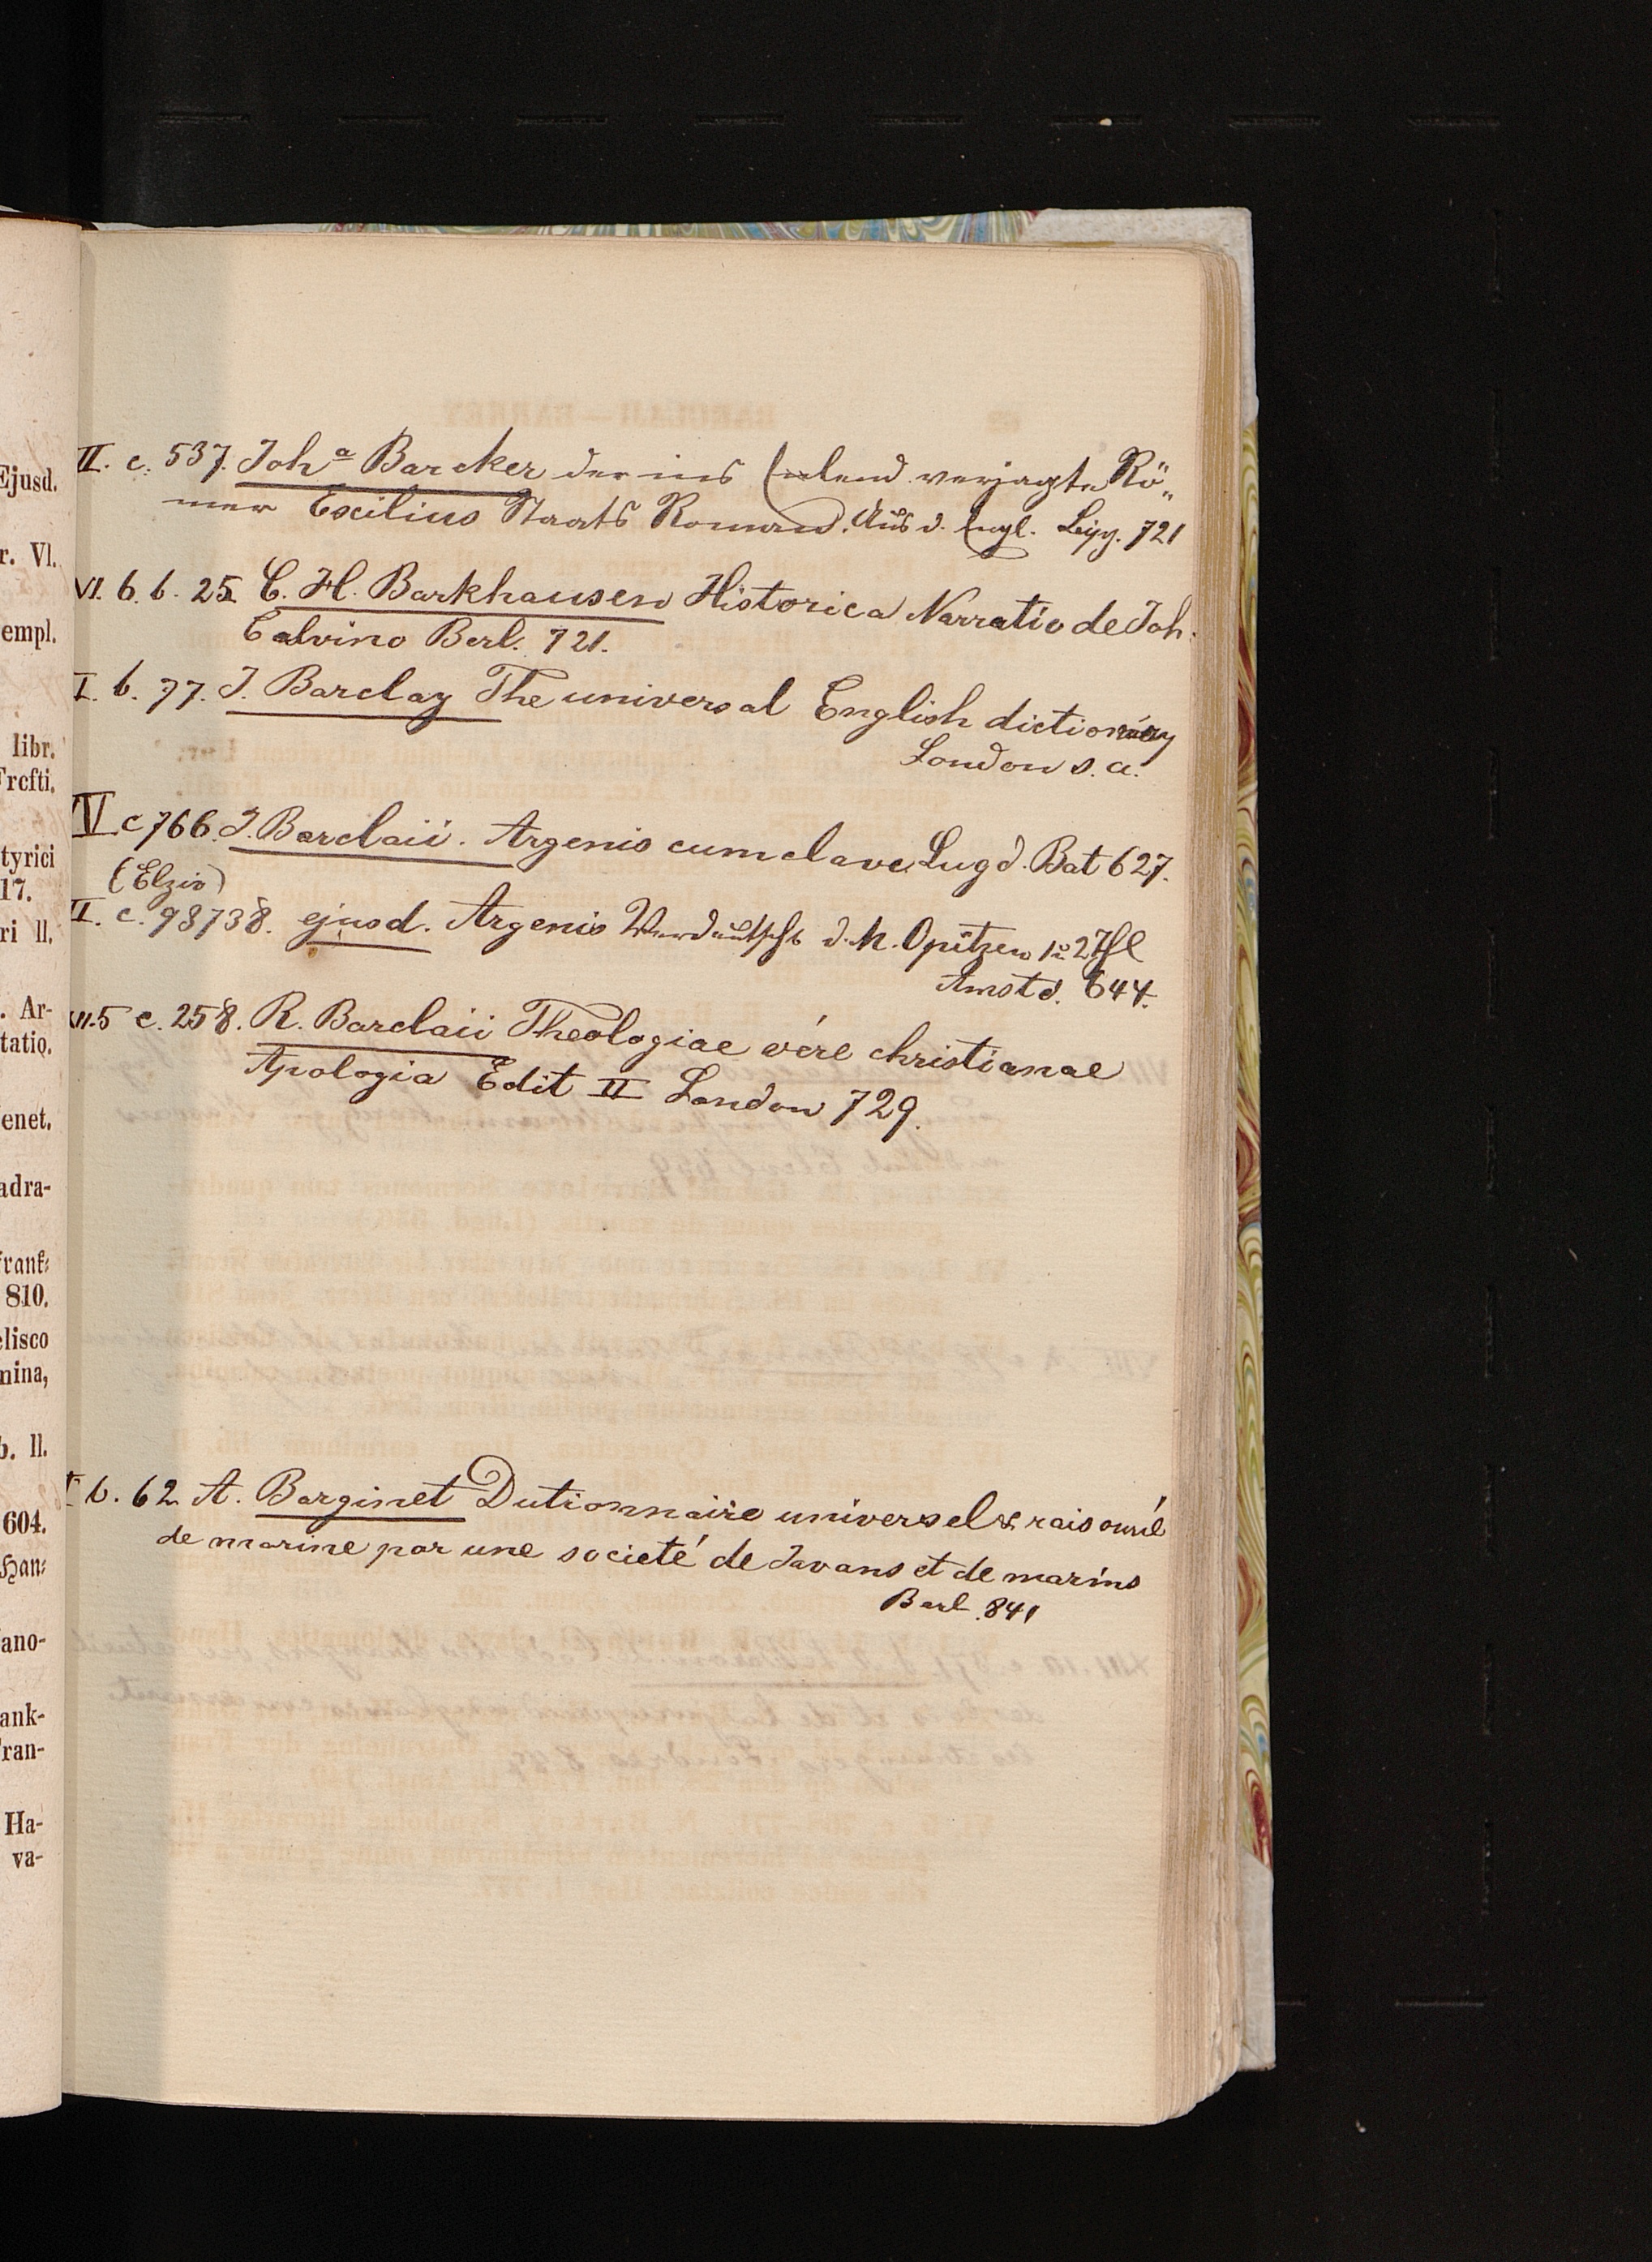 II. c. 537. Joh.ª Barcker der ins Elend verjagte Rö„
mer Exilius Staats Roman. Aus d. Engl. Leipz. 721
VI. 6. b. 25. C. H. Barkhausen Historica Narratio de Joh.
Calvino Berl. 721.
I. b. 77. J. Barclay The universal English dictionary
London s. a.
IV c 766. J. Barclaii. Argenis cum clave Lugd. Bat 627.
(Elziv)
II. c. 98738. ejusd. Argenis Verdeutscht d. M. Opitzen 1 u 2 Thl
Amstd. 644.
XII.5 c. 258. R. Barclaii Theologiae vére christianae
Apologia Edit II London 729.
I b. 62 A. Barginet Dutionnaire universel & raisonné
de marine par une societé de Savans et de marins
Berl. 841
Ejusd.
r. VI.
empl.
libr.
Frcfti.
tyrici
17.
ri ll.
. Ar-
tatio.
enet.
adra-
frank-
810.
elisco
mina,
b. ll.
604.
Han-
ano-
ank-
Fran-
Ha-
va-